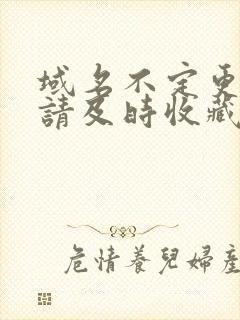 域名不定更
請及時收藏
危情養兒婦產